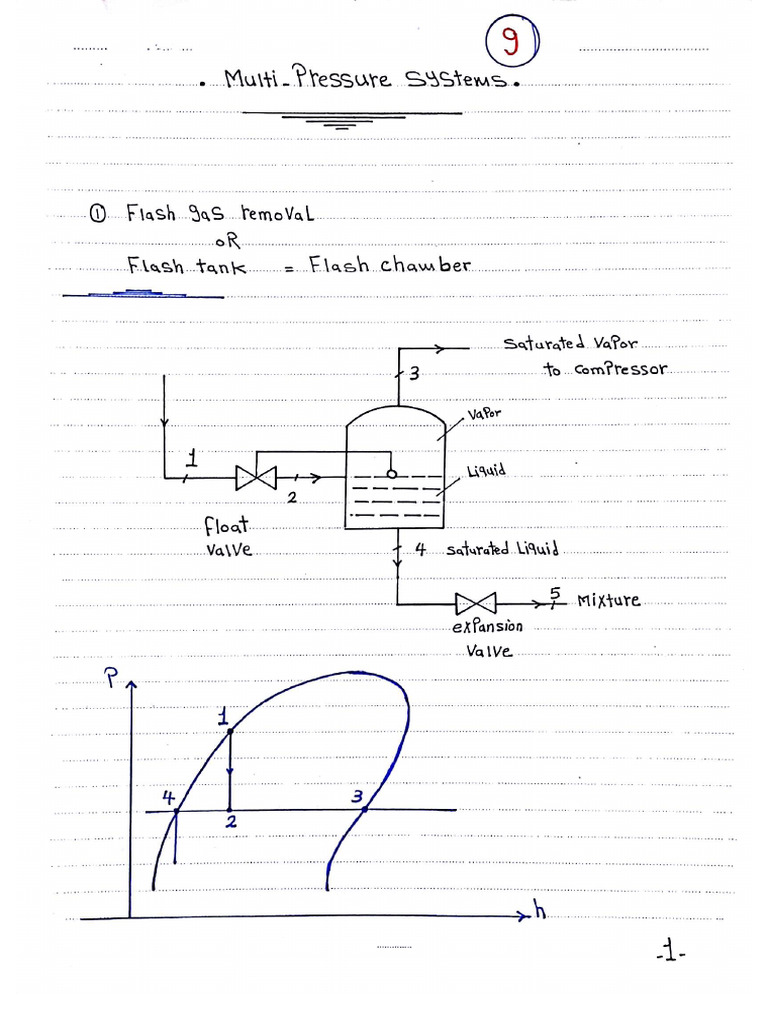 9
. Multi-Pressure Systems.
① Flash gas removal
OR
Flash tank = Flash chamber
Saturated Vapor
3 to compressor
Vapor
1
Liquid
2
float
valve
4 saturated Liquid
5 Mixture
expansion
Valve
P
1
4
3
2
h
-1-